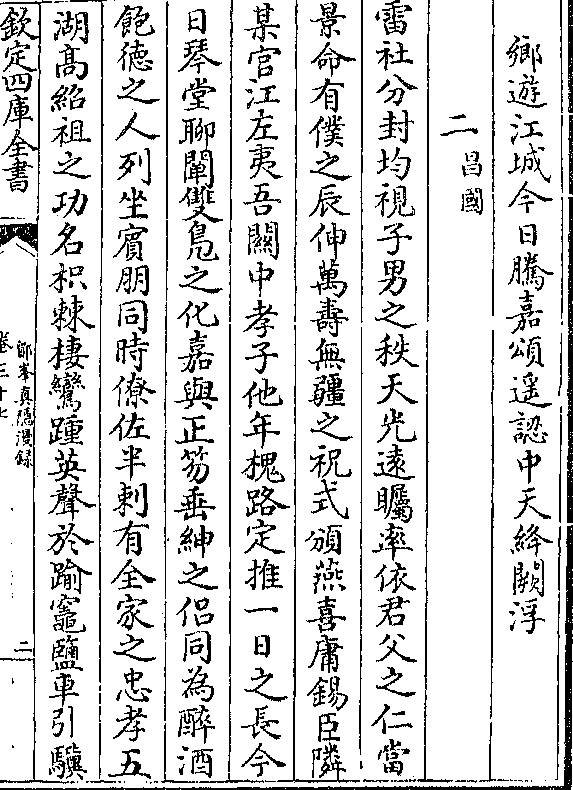 鄉遊江城今日騰嘉頌遥認中天絳闕浮
二昌國
雷社分封均視子男之秩天光遠矚率依君父之仁當
景命有僕之辰伸萬壽無疆之祝式頒燕喜庸錫臣隣
某官江左夷吾關中孝子他年槐路定推一日之長今
日琴堂聊闡雙鳬之化嘉與正笏垂紳之侣同為醉酒
飽德之人列坐賓朋同時僚佐半剌有全家之忠孝五
湖髙紹祖之功名枳棘棲鸞踵英聲於踰竈鹽車引驥
欽定四庫全書
鄮峯真隠漫録
卷三十七
二